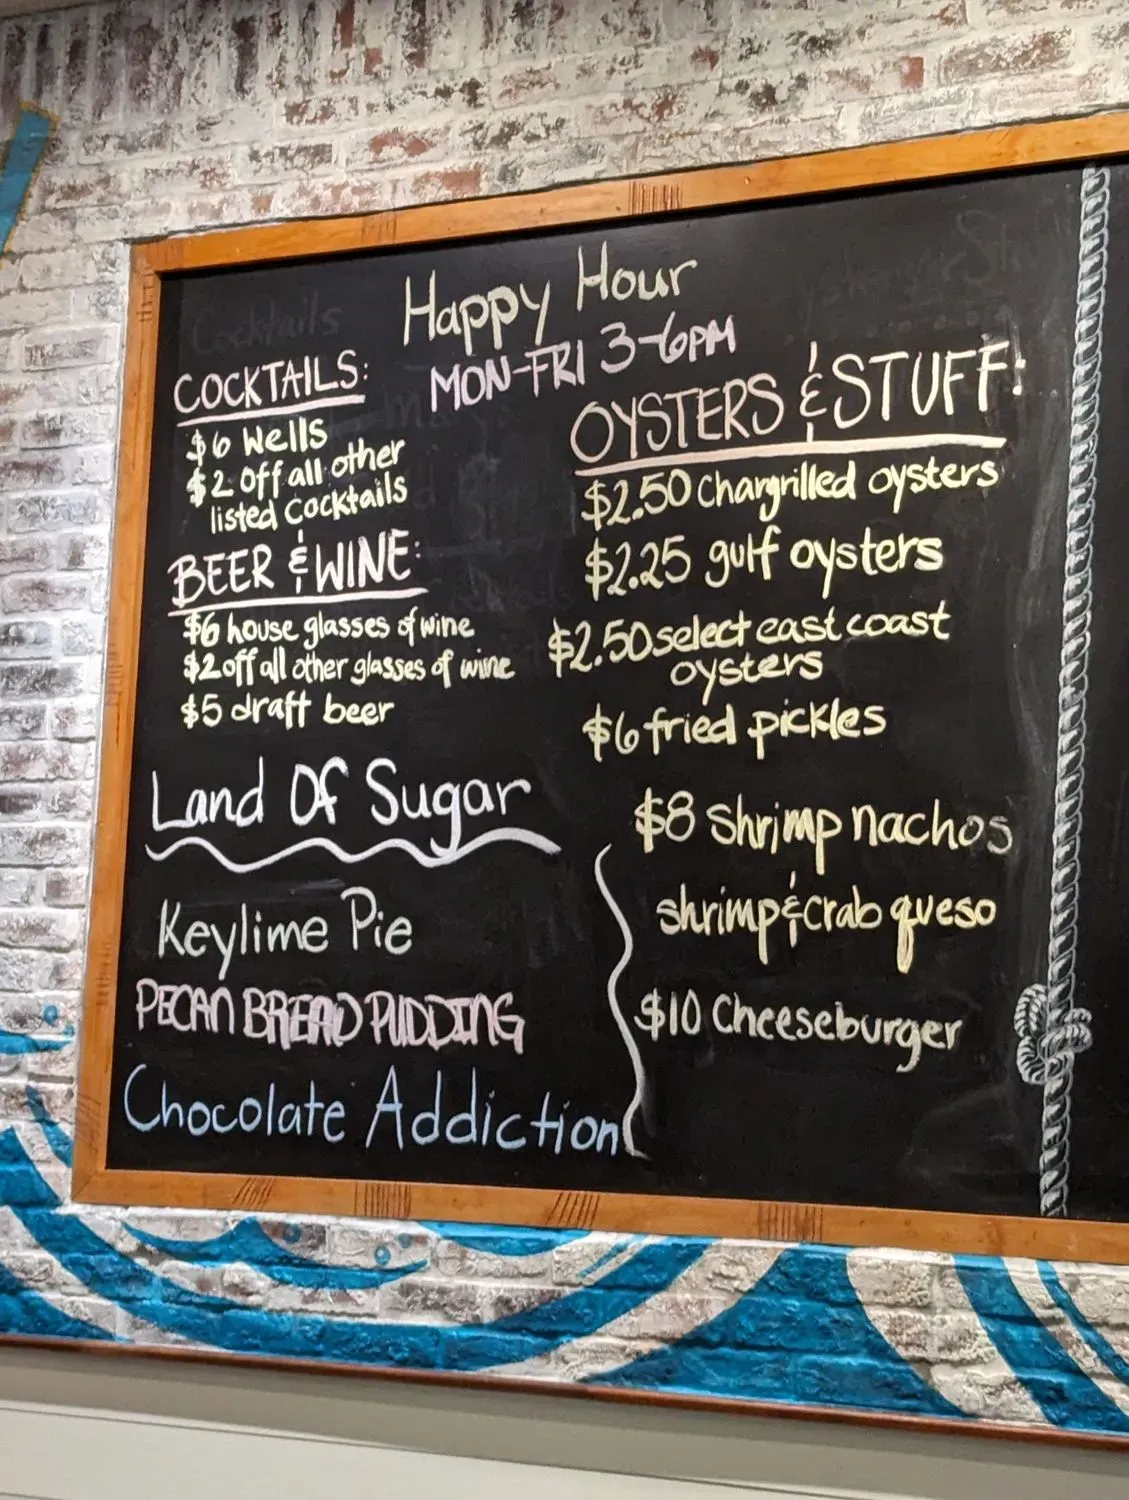 Happy Hour
MON-FRI 3-6PM
COCKTAILS:
$6 Wells
$2 off all other
listed cocktails
BEER & WINE:
$6 house glasses of wine
$2 off all other glasses of wine
$5 draft beer
Land Of Sugar
Keylime Pie
PECAN BREAD PUDDING
Chocolate Addiction
OYSTERS & STUFF:
$2.50 Chargrilled oysters
$2.25 gulf oysters
$2.50 select east coast
oysters
$6 fried pickles
$8 Shrimp nachos
shrimp & crab queso
$10 Cheeseburger
Cocktails